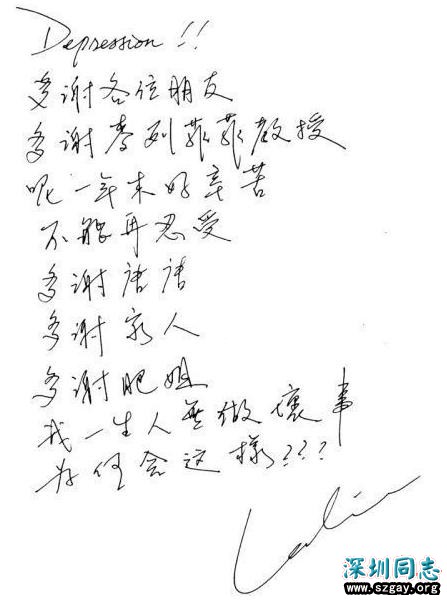 Depression!!
多謝各位朋友
多謝麥列菲菲教授
呢一年來好辛苦
不能再忍受
多謝唐唐
多謝家人
多謝肥姐
我一生人無做壞事
为何会这樣???
Leslie
深圳同志
www.szgay.org